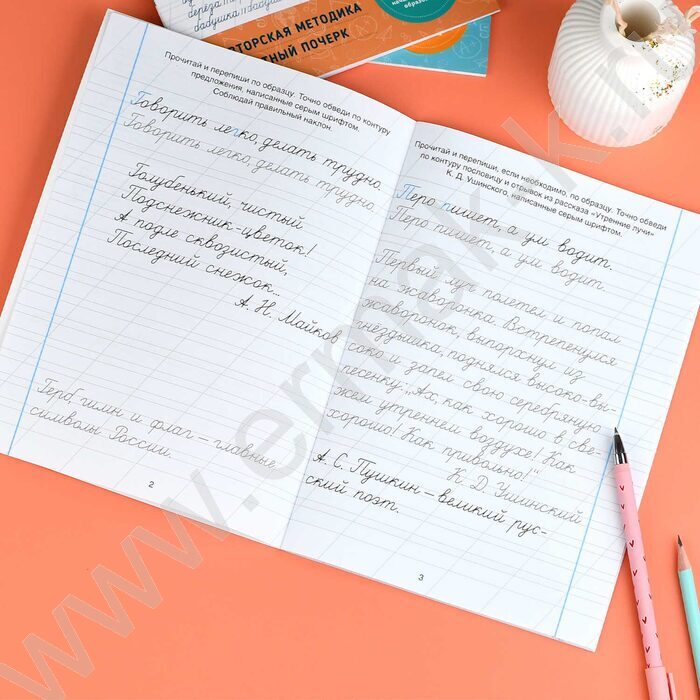 дереза
бабушка бабушка
АВТОРСКАЯ МЕТОДИКА
ПОЧЕРК
Прочитай и перепиши по образцу. Точно обведи по контуру
предложения, написанные серым шрифтом.
Соблюдай правильный наклон.
Говорить легко, делать трудно.
Говорить легко, делать трудно.
Голубенький, чистый
Подснежник-цветок!
А подле сквозистый,
Последний снежок...
А. Н. Майков
Герб, гимн и флаг – главные
символы России.
2
Прочитай и перепиши, если необходимо, по образцу. Точно обведи
по контуру пословицу и отрывок из рассказа «Утренние лучи»
К. Д. Ушинского, написанные серым шрифтом.
Перо пишет, а ум водит.
Перо пишет, а ум водит.
Первый луч полетел и попал
на жаворонка. Встрепенулся
жаворонок, выпорхнул из
гнёздышка, поднялся высоко-вы-
соко и запел свою серебряную
песенку: „Ах, как хорошо в све-
жем утреннем воздухе! Как
хорошо! Как привольно!“
К. Д. Ушинский
А. С. Пушкин – великий рус-
ский поэт.
3
www.ermak-k.ru